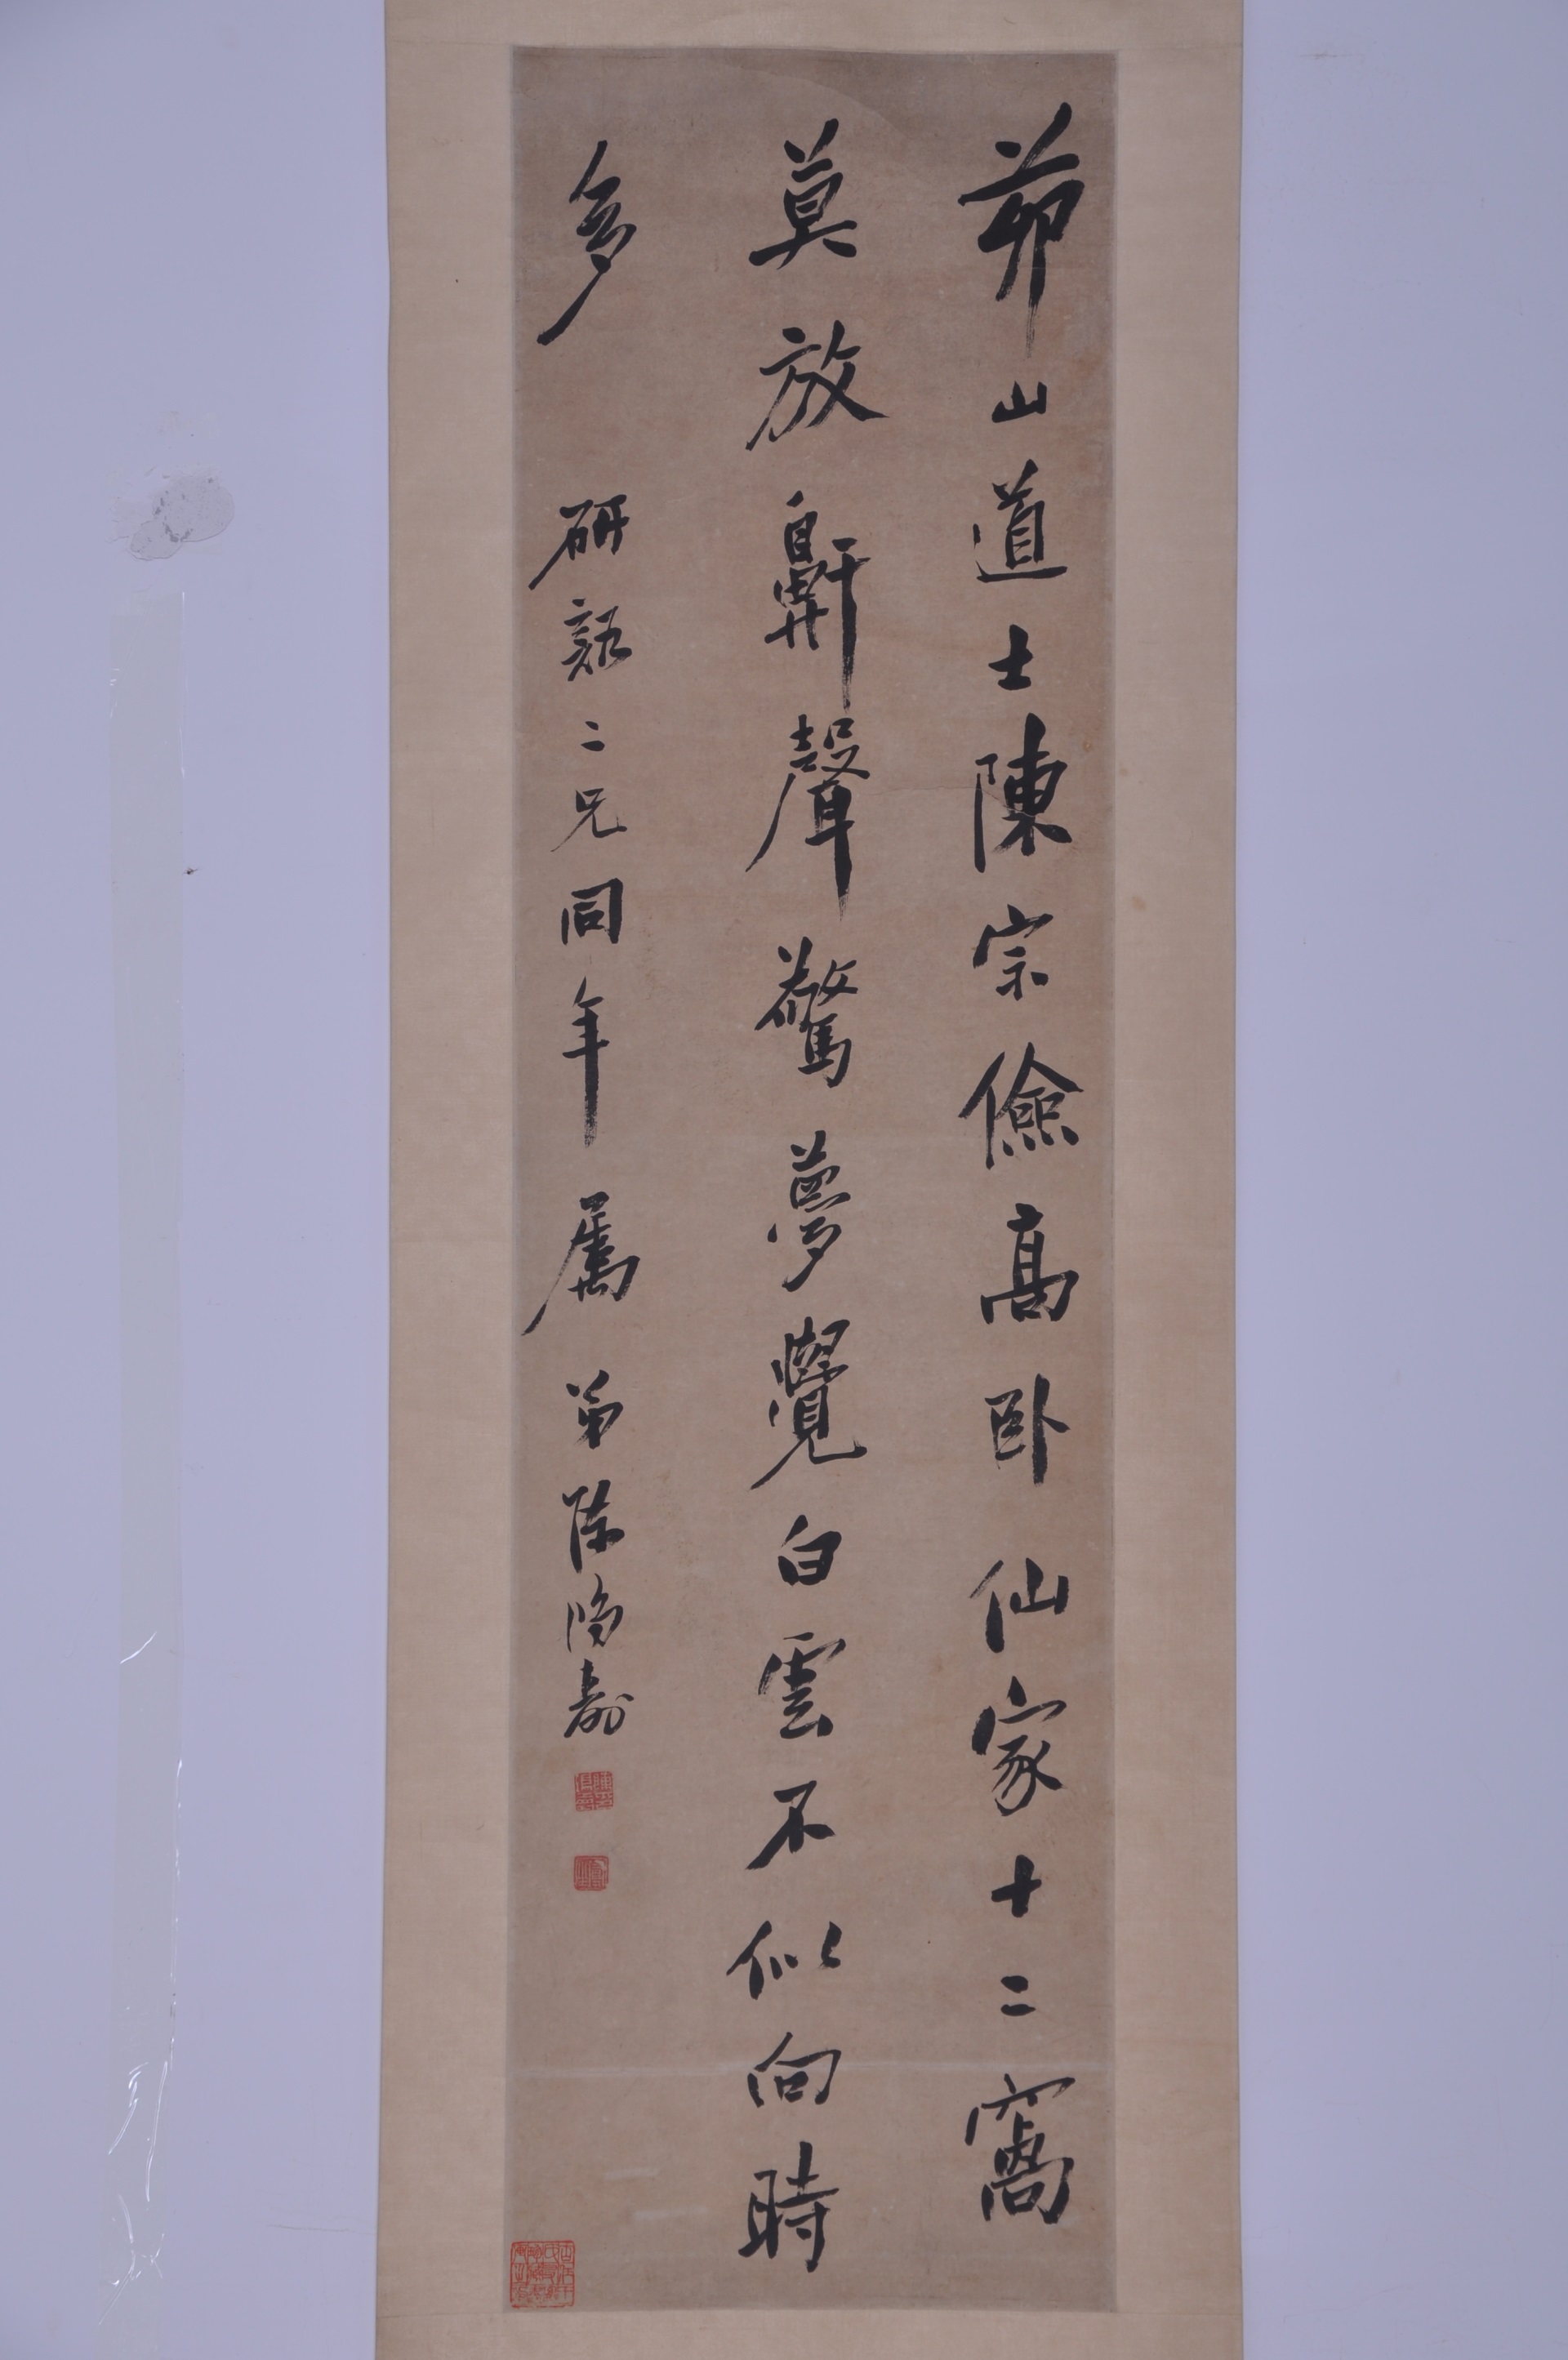 茆山道士陳宗儉高卧仙家十二窩
莫放鼾聲驚夢覺白雲不似向時
多 研詒二兄同年屬 弟陈鴻壽